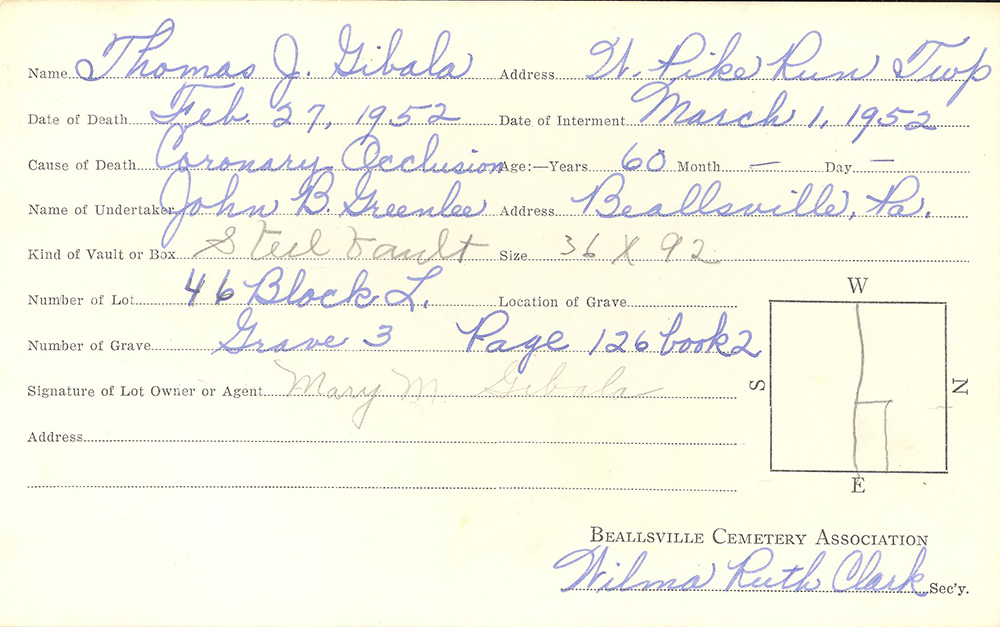 Name Thomas J. Gibala Address W. Pike Run Twp
Date of Death Feb. 27, 1952 Date of Interment March 1, 1952
Cause of Death Coronary Occlusion Age:—Years 60 Month — Day —
Name of Undertaker John B. Greenlee Address Beallsville, Pa.
Kind of Vault or Box Steel Vault Size 36 X 92
Number of Lot 46 Block L. Location of Grave
Number of Grave Grave 3 Page 126 book 2
Signature of Lot Owner or Agent Mary M. Gibala
Address
W
S
N
E
BEALLSVILLE CEMETERY ASSOCIATION
Wilma Ruth Clark Sec'y.